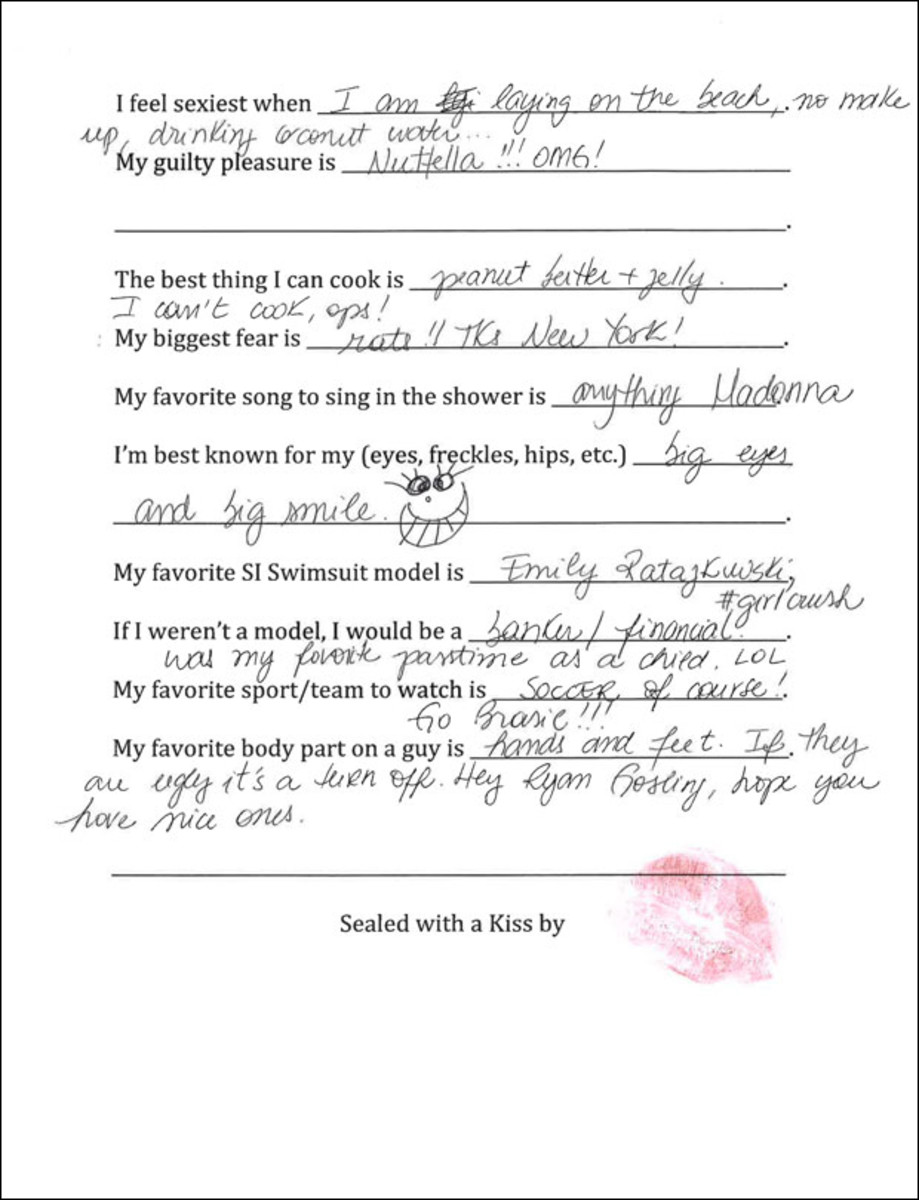 I feel sexiest when I am laying on the beach, no make
up, drinking coconut water...
My guilty pleasure is Nuttella!!! OMG!
The best thing I can cook is peanut butter + jelly.
I can't cook, ops!
My biggest fear is rats!! TKs New York!
My favorite song to sing in the shower is anything Madonna
I'm best known for my (eyes, freckles, hips, etc.) big eyes
and big smile.
My favorite SI Swimsuit model is Emily Ratajkowski,
#girlcrush
If I weren't a model, I would be a banker/financial.
was my favorite pasttime as a child. LOL
My favorite sport/team to watch is SOCCER of course!
Go Brasil!!!
My favorite body part on a guy is hands and feet. If they
are ugly it's a turn off. Hey Ryan Gosling, hope you
have nice ones.
Sealed with a Kiss by